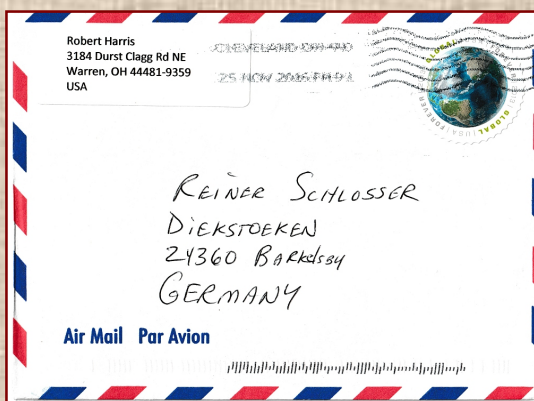 Robert Harris
3184 Durst Clagg Rd NE
Warren, OH 44481-9359
USA
CLEVELAND OH 440
25 NOV 2016 PM 9 L
GLOBAL
GLOBAL | USA | FOREVER
REINER SCHLOSSER
DIEKSTOEKEN
24360 BARKELSBY
GERMANY
Air Mail Par Avion